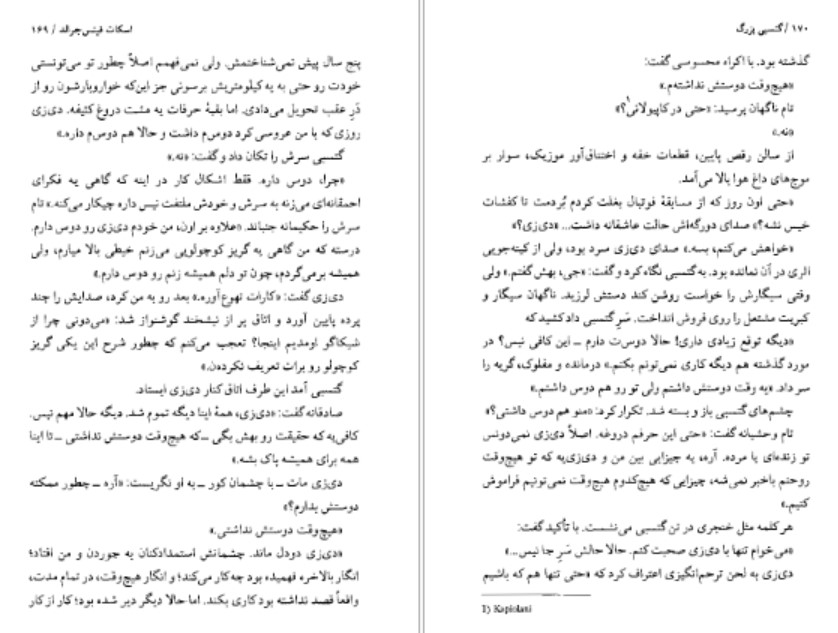 اسکات فیتس‌جرالد / ۱۶۹
پنج سال پیش نمی‌شناختمش. ولی نمی‌فهمم اصلاً چطور تو می‌تونستی
خودت رو حتی به یه کیلومتریش برسونی جز این‌که خواروبارشون رو از
درِ عقب تحویل می‌دادی. اما بقیهٔ حرفات یه مشت دروغ کثیفه. دی‌زی
روزی که با من عروسی کرد دوسم داشت و حالا هم دوسم داره.»
گتسبی سرش را تکان داد و گفت: «نه.»
«چرا، دوس داره. فقط اشکال کار در اینه که گاهی یه فکرای
احمقانه‌ای می‌زنه به سرش و خودش ملتفت نیس داره چیکار می‌کنه.» تام
سرش را حکیمانه جنباند. «علاوه بر اون، من خودم دی‌زی رو دوس دارم.
درسته که من گاهی یه گریز کوچولویی می‌زنم خیطی بالا میارم، ولی
همیشه برمی‌گردم، چون تو دلم همیشه زنم رو دوس دارم.»
دی‌زی گفت: «کارات تهوع‌آوره.» بعد رو به من کرد، صدایش را چند
پرده پایین آورد و اتاق پر از نیشخند گوشنواز شد: «می‌دونی چرا از
شیکاگو اومدیم اینجا؟ تعجب می‌کنم که چطور شرح این یکی گریز
کوچولو رو برات تعریف نکرده‌ن.»
گتسبی آمد این طرف اتاق کنار دی‌زی ایستاد.
صادقانه گفت: «دی‌زی، همهٔ اینا دیگه تموم شد. دیگه حالا مهم نیس.
کافی‌یه که حقیقت رو بهش بگی ــ که هیچ‌وقت دوستش نداشتی ــ تا اینا
همه برای همیشه پاک بشه.»
دی‌زی مات ــ با چشمان کور ــ به او نگریست: «آره ــ چطور ممکنه
دوستش بدارم؟»
«هیچ‌وقت دوستش نداشتی.»
«دی‌زی دودل ماند. چشمانش استمدادکنان به جوردن و من افتاد؛
انگار بالاخره فهمیده بود چه کار می‌کند؛ و انگار هیچ‌وقت، در تمام مدت،
واقعاً قصد نداشته بود کاری بکند. اما حالا دیگر دیر شده بود؛ کار از کار
۱۷۰ / گتسبی بزرگ
گذشته بود. با اکراه محسوسی گفت:
«هیچ‌وقت دوستش نداشته‌م.»
تام ناگهان پرسید: «حتی در کاپیولانی¹؟»
«نه.»
از سالن رقص پایین، قطعات خفه و اختناق‌آور موزیک، سوار بر
موج‌های داغ هوا بالا می‌آمد.
«حتی اون روز که از مسابقهٔ فوتبال بغلت کردم بُردمت تا کفشات
خیس نشه؟» صدای دورگه‌اش حالت عاشقانه داشت... «دی‌زی؟»
«خواهش می‌کنم، بسه.» صدای دی‌زی سرد بود، ولی از کینه‌جویی
اثری در آن نمانده بود. به گتسبی نگاه کرد و گفت: «جی، بهش گفتم.» ولی
وقتی سیگارش را خواست روشن کند دستش لرزید. ناگهان سیگار و
کبریت مشتعل را روی فروش انداخت. سَرِ گتسبی داد کشید که
«دیگه توقع زیادی داری! حالا دوست دارم ــ این کافی نیس؟ در
مورد گذشته هم دیگه کاری نمی‌تونم بکنم.» درمانده و مفلوک، گریه را
سر داد. «یه وقت دوستش داشتم ولی تو رو هم دوس داشتم.»
چشم‌های گتسبی باز و بسته شد. تکرار کرد: «منو هم دوس داشتی؟»
تام وحشیانه گفت: «حتی این حرفم دروغه. اصلاً دی‌زی نمی‌دونس
تو زنده‌ای یا مرده. آره، یه چیزایی بین من و دی‌زی‌یه که تو هیچ‌وقت
روحتم باخبر نمی‌شه، چیزایی که هیچ‌کدوم هیچ‌وقت نمی‌تونیم فراموش
کنیم.»
هر کلمه مثل خنجری در تن گتسبی می‌نشست. با تأکید گفت:
«می‌خوام تنها با دی‌زی صحبت کنم. حالا حالش سَرِ جا نیس...»
دی‌زی به لحن ترحم‌انگیزی اعتراف کرد که «حتی تنها هم که باشیم
1) Kapiolani